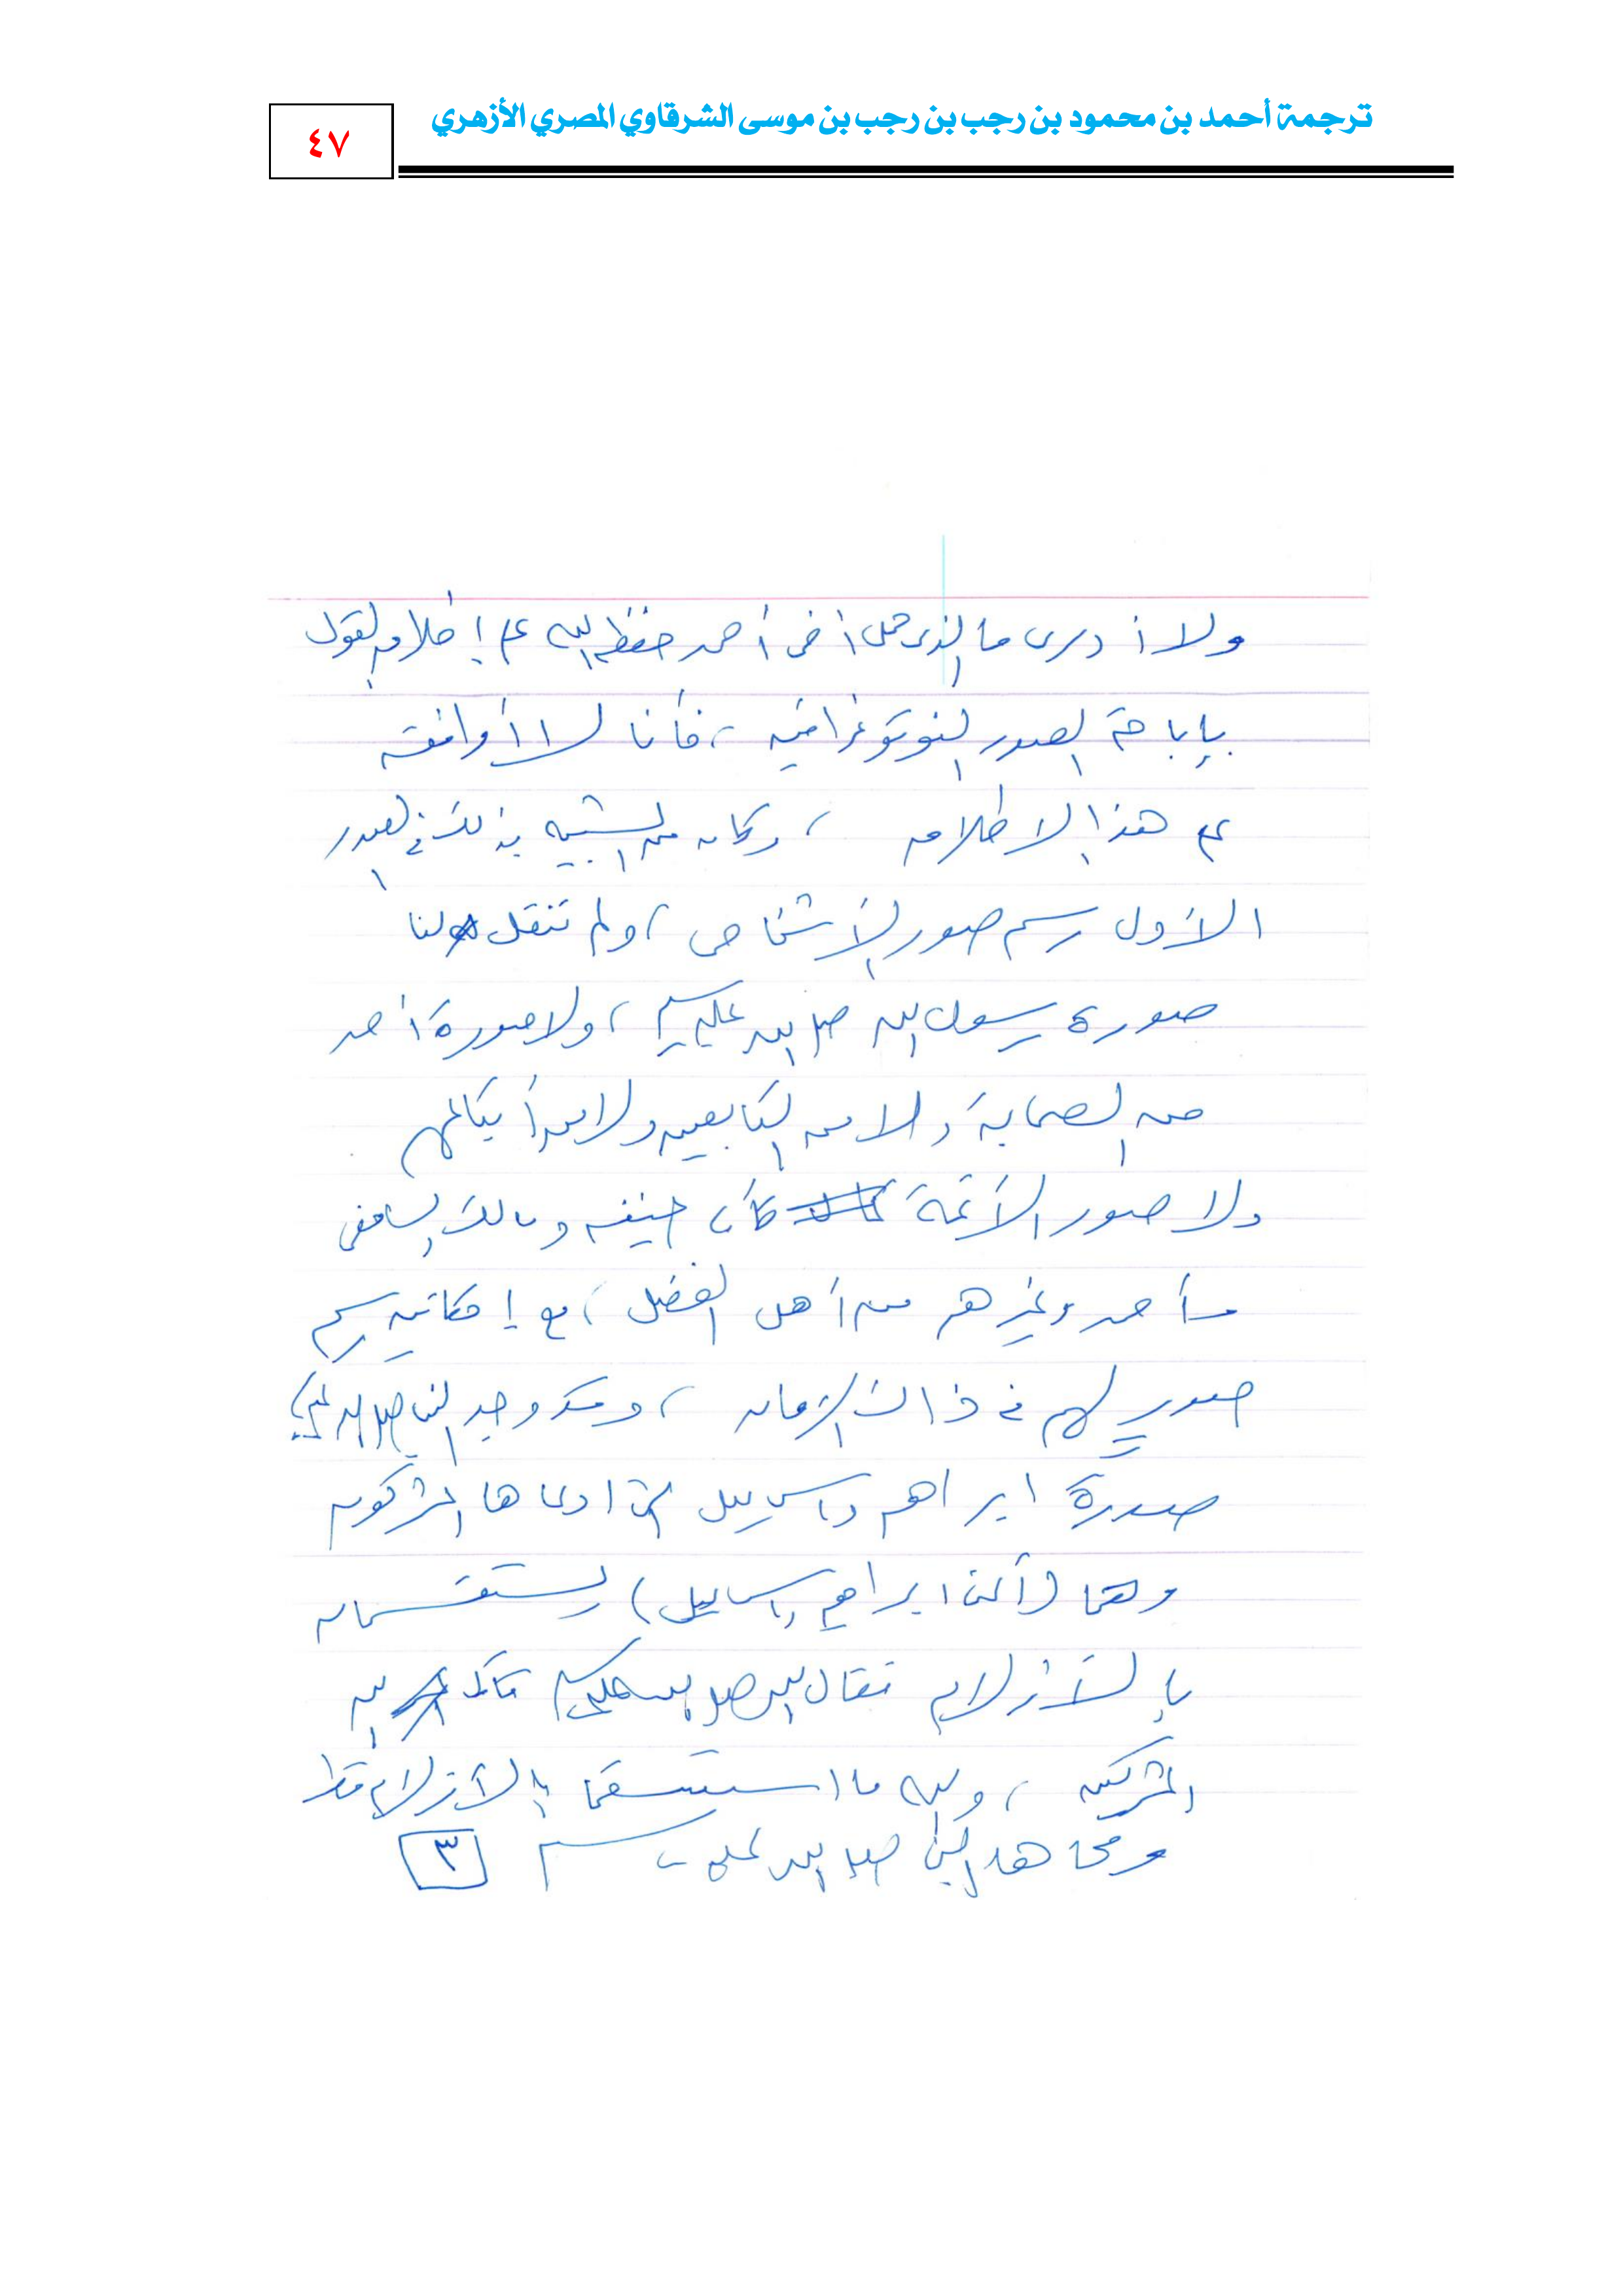 ترجمة أحمد بن محمود بن رجب بن رجب بن موسى الشرقاوي المصري الأزهري
٤٧
ولا أدرى ما الذى حمل أخى أحمد حفظه الله على إطلاق القول
بإباحة الصور الفوتوغرافيه، فأنا لا أوافقه
على هذا الإطلاق، وكان من الشبيه بذلك في الصدر
الأول رسم صور الأشخاص، ولم تنقل لنا
صورة رسول الله صلى الله عليه وسلم، ولا صورة أحد
من الصحابة ولا من التابعين ولا من أتباعهم
ولا صور الأئمة كأبى حنيفه ومالك والشافعى
وأحمد وغيرهم من أهل الفضل، مع إمكانيه رسم
صورٍ لهم في ذاك الزمان، وقد وجد النبى صلى الله عليه وسلم
صورة ابراهيم واسماعيل التى ادعاها المشركون
وهما (أعنى ابراهيم واسماعيل) يستقسمان
بالأزلام فقال النبى صلى الله عليه وسلم قاتل الله
المشركين، والله ما استقسما بالأزلام قط
ومحاها النبى صلى الله عليه وسلم ٣